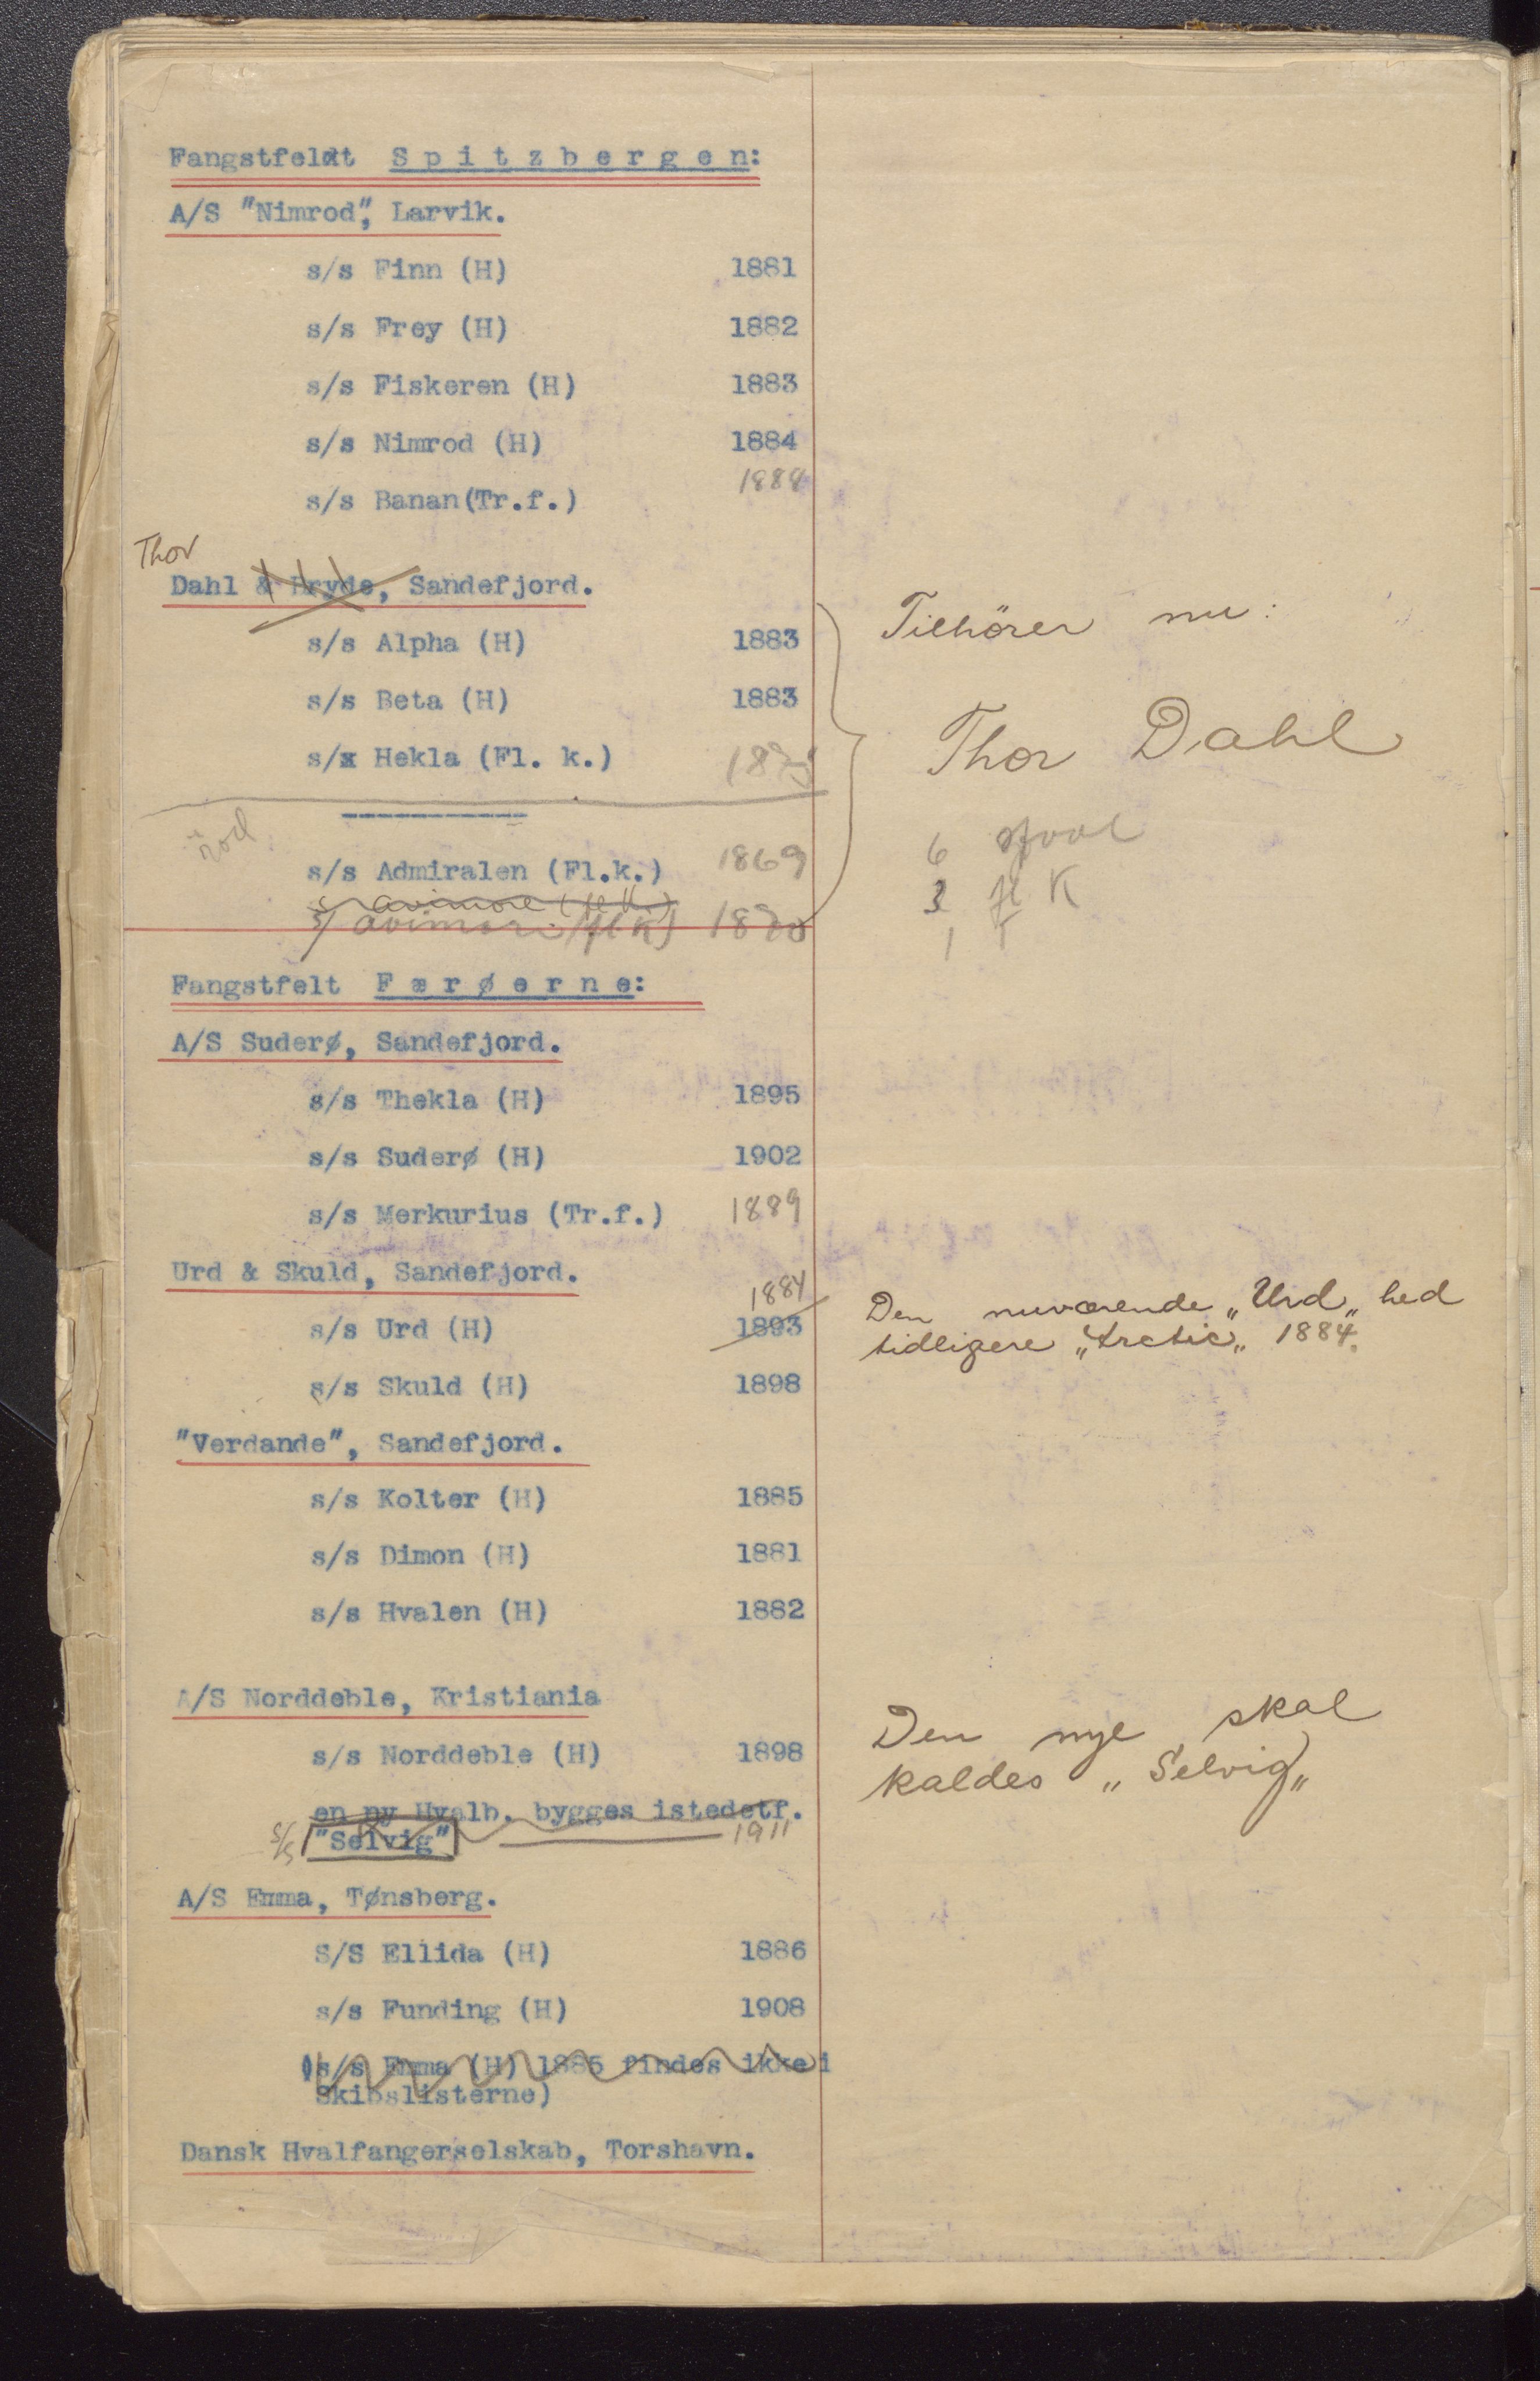 Fangstfeldt Spitzbergen:
A/S "Nimrod", Larvik.
s/s Finn (H) 1881
s/s Frey (H) 1882
s/s Fiskeren (H) 1883
s/s Nimrod (H) 1884
s/s Banan(Tr.f.) 1888
Thor
Dahl & Bryde, Sandefjord.
s/s Alpha (H) 1883
s/s Beta (H) 1883
s/s Hekla (Fl. k.)
Tilhörer nu:
Thor Dahl
s/s Admiralen (Fl.k.) 1869
avimore (fl k.)
s/ avimore (fl K)
6
3 fl K
1 T
Fangstfelt Færøerne:
A/S Suderø, Sandefjord.
s/s Thekla (H) 1895
s/s Suderø (H) 1902
s/s Merkurius (Tr.f.) 1889
Urd & Skuld, Sandefjord.
1884
s/s Urd (H) 1893
Den nuværende „Urd„ hed
tidligere „Arctic„ 1884.
s/s Skuld (H) 1898
"Verdande", Sandefjord.
s/s Kolter (H) 1885
s/s Dimon (H) 1881
s/s Hvalen (H) 1882
A/S Norddeble, Kristiania
s/s Norddeble (H) 1898
Den nye skal
kaldes „Selvig„
en ny Hvalb. bygges istedetf.
s/s "Selvig" 1911
A/S Emma, Tønsberg.
S/S Ellida (H) 1886
s/s Funding (H) 1908
(s/s Emma (H) 1885 findes ikke i
Skibslisterne)
Dansk Hvalfangerselskab, Torshavn.